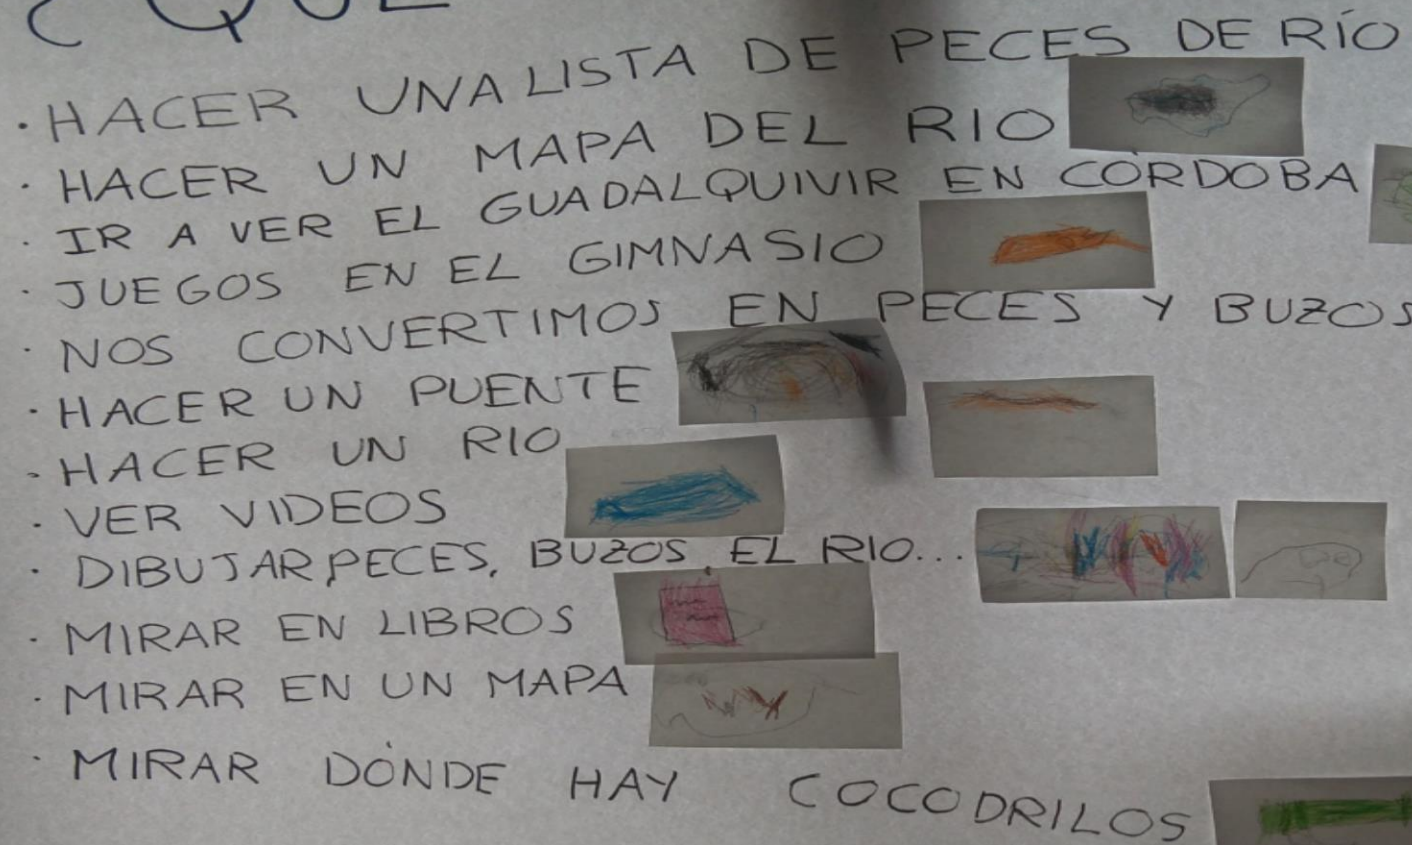 ¿QUE
· HACER UNA LISTA DE PECES DE RÍO
· HACER UN MAPA DEL RIO
· IR A VER EL GUADALQUIVIR EN CÓRDOBA
· JUEGOS EN EL GIMNASIO
· NOS CONVERTIMOS EN PECES Y BUZOS
· HACER UN PUENTE
· HACER UN RIO
· VER VIDEOS
· DIBUJAR PECES, BUZOS, EL RIO...
· MIRAR EN LIBROS
· MIRAR EN UN MAPA
· MIRAR DÓNDE HAY COCODRILOS